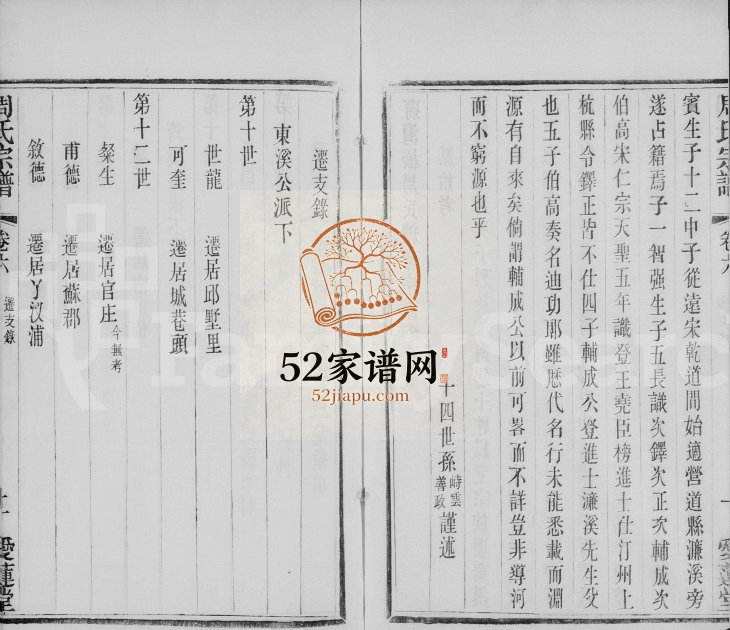 周氏宗譜
賓生子十二中子從遠宋乾道間始適營道縣濂溪旁
遂占籍焉子一智强生子五長識次鐸次正次輔成次
伯高宋仁宗天聖五年識登王堯臣榜進士仕汀州上
杭縣令鐸正皆不仕四子輔成公登進士濂溪先生父
也五子伯高奏名迪功耶雖歷代名行未能悉載而淵
源有自來矣倘謂輔成公以前可畧而不詳豈非導河
而不窮源也乎
十四世孫 峙雲 善政 謹述
遷支錄
東溪公派下
第十世
世龍 遷居邱墅里
可奎 遷居城巷頭
第十二世
粲生 遷居官庄 今無考
甫德 遷居蘇郡
敘德 遷居丫汊浦
周氏宗譜 卷六 遷支錄 十一 愛蓮堂
卷六
愛蓮堂
52家谱网
52jiapu.com